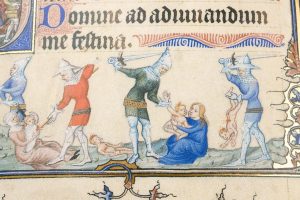 Domine ad adiuuandum
me festina.